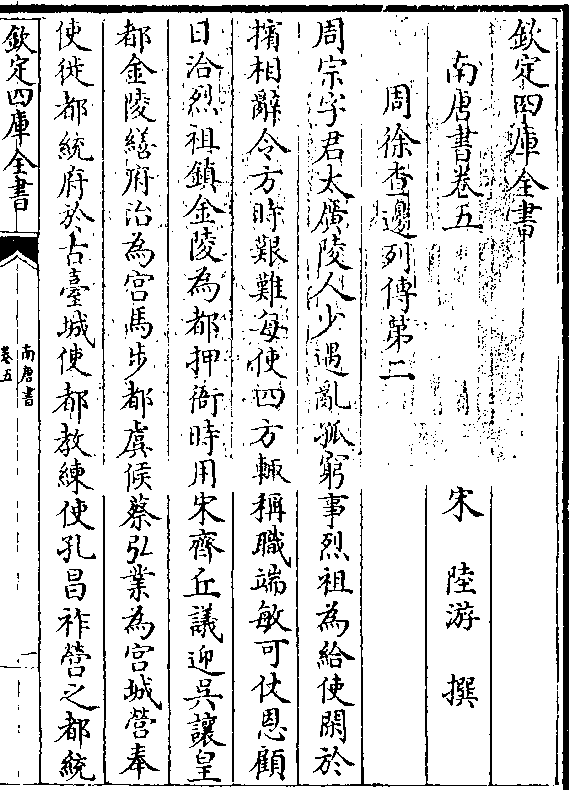 欽定四庫全書
南唐書卷五
宋 陸游 撰
周徐查邊列傳第二
周宗字君太廣陵人少遇亂孤窮事烈祖為給使閑於
擯相辭令方時艱難每使四方輒稱職端敏可仗恩顧
日洽烈祖鎮金陵為都押衙時用宋齊丘議迎吳讓皇
都金陵繕府治為宮馬步都虞候蔡弘業為宮城營奉
使徙都統府於古臺城使都教練使孔昌祚營之都統
欽定四庫全書
南唐書
卷五
一